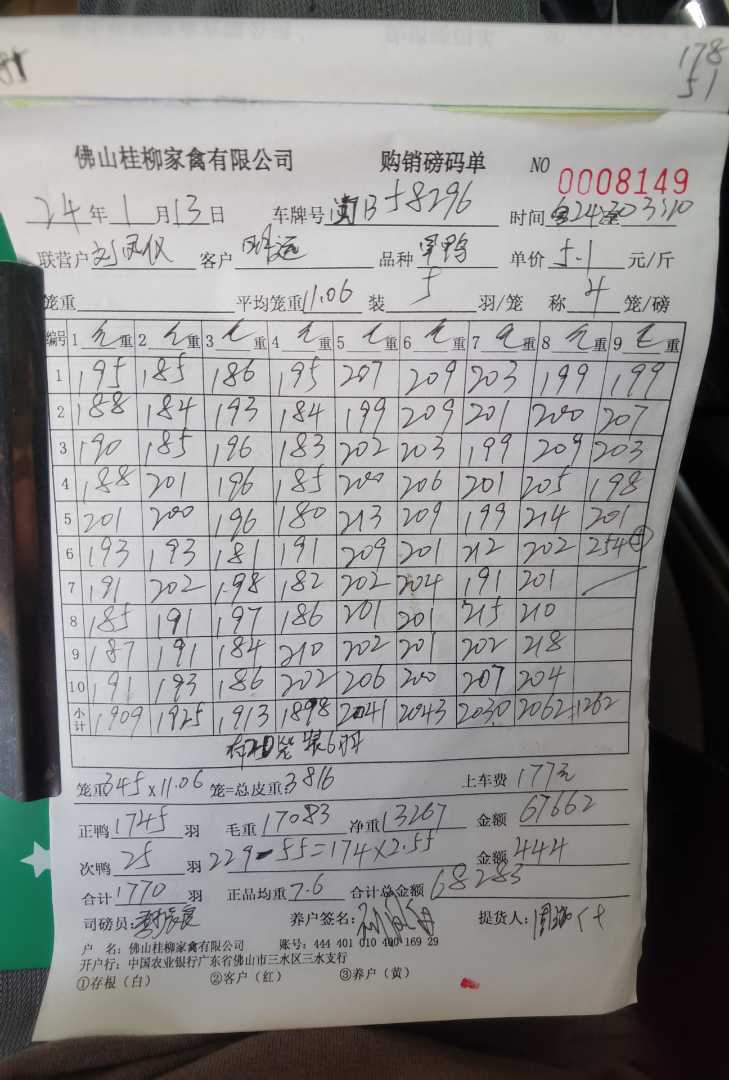 178
51
佛山桂柳家禽有限公司 购销磅码单 NO 0008149
24年1月13日 车牌号 B58296 时间
联营户 刘凤仪 客户 单价 5.1 元/斤 品种 旱鸭
笼重 平均笼重 11.06 装 5 羽/笼 称 4 笼/磅
编号 1 重 2 重 3 重 4 重 5 重 6 重 7 重 8 重 9 重
1 195 185 186 195 207 209 203 199 199
2 188 184 193 184 199 209 201 200 207
3 190 185 196 183 202 203 199 209 203
4 188 201 196 185 200 206 201 205 198
5 201 200 196 180 213 209 199 214 201
6 193 193 181 191 209 201 212 202 254 ⑤
7 191 202 198 182 202 204 191 201
8 185 191 197 186 201 201 215 210
9 187 191 184 210 202 201 202 218
10 191 193 186 202 206 200 207 204
小计 1909 1925 1913 1898 2041 2043 2030 2062 1262
有20笼装6只
笼重 345 x 11.06 笼=总皮重 3816 上车费 177元
正鸭 1745 羽 毛重 17083 净重 13267 金额 67662
次鸭 25 羽 229-55=174x2.55 金额 444
合计 1770 羽 正品均重 7.6 合计总金额 68283
司磅员: 养户签名: 提货人:
户 名: 佛山桂柳家禽有限公司 账号: 444 401 010 400 169 29
开户行: 中国农业银行广东省佛山市三水区三水支行
①存根(白) ②客户(红) ③养户(黄)